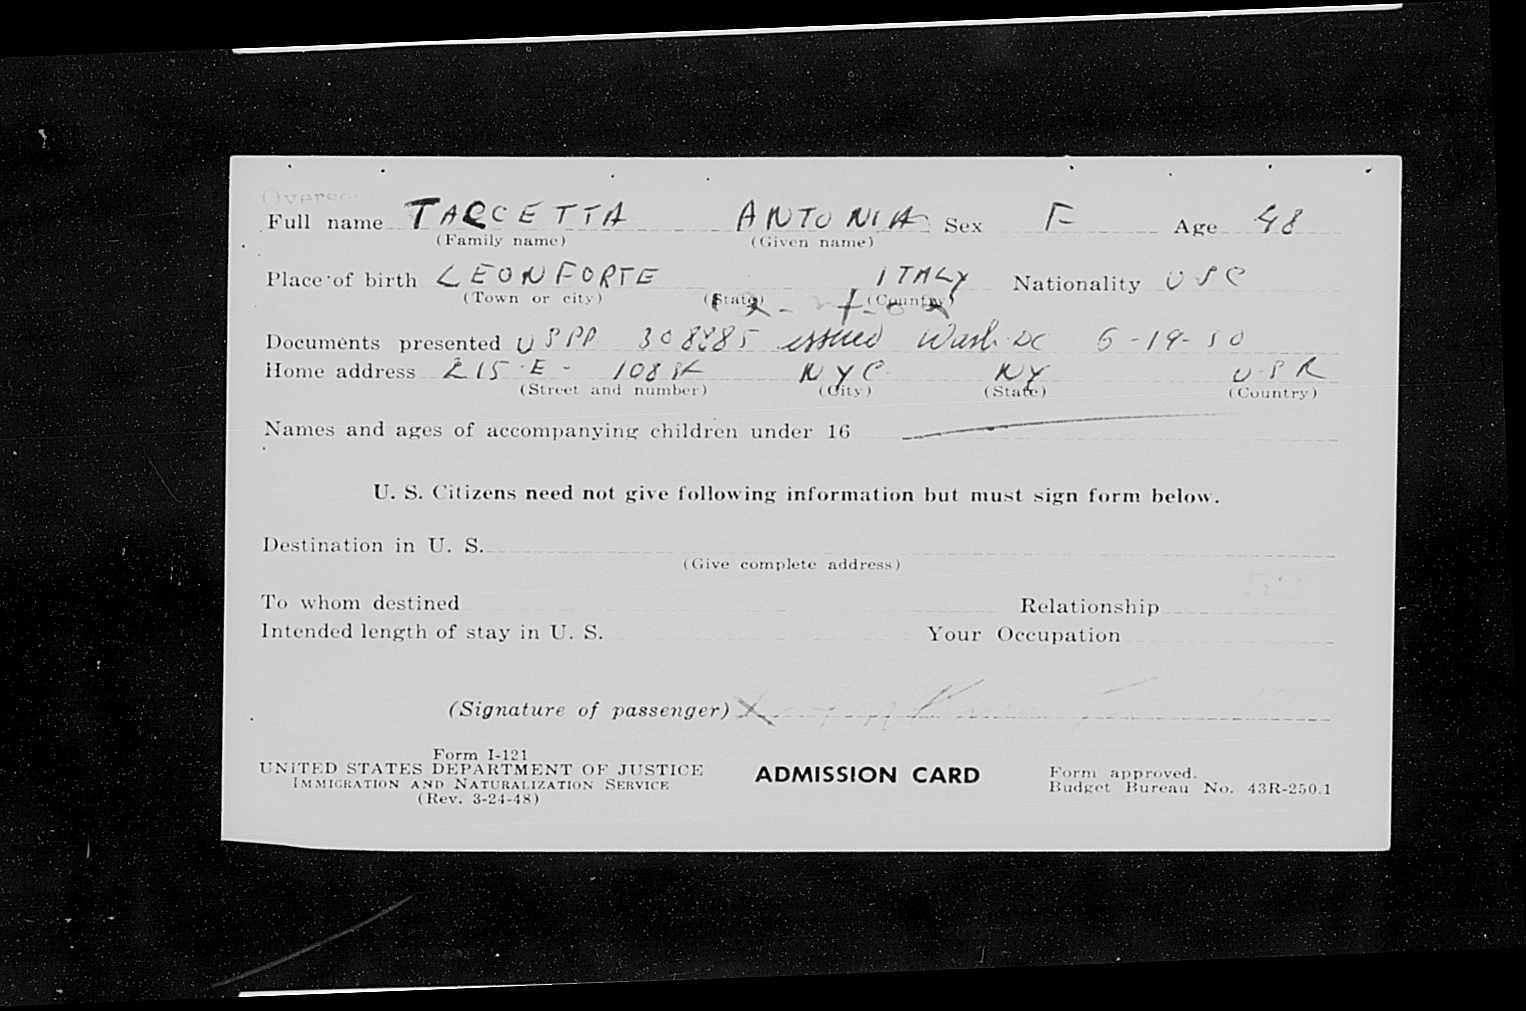 Full name TACCETTA ANTONIA Sex F Age 48
(Family name) (Given name)
Place of birth LEONFORTE ITALY Nationality USC
(Town or city) (State) (Country)
Documents presented USPP 308885 issued Wash DC 5-19-50
Home address 215 E. 108 St NYC NY
(Street and number) (City) (State) (Country)
Names and ages of accompanying children under 16
U. S. Citizens need not give following information but must sign form below.
Destination in U. S.
(Give complete address)
To whom destined Relationship
Intended length of stay in U. S. Your Occupation
(Signature of passenger) X
Form I-121
UNITED STATES DEPARTMENT OF JUSTICE
IMMIGRATION AND NATURALIZATION SERVICE
(Rev. 3-24-48)
ADMISSION CARD
Form approved.
Budget Bureau No. 43R-250.1